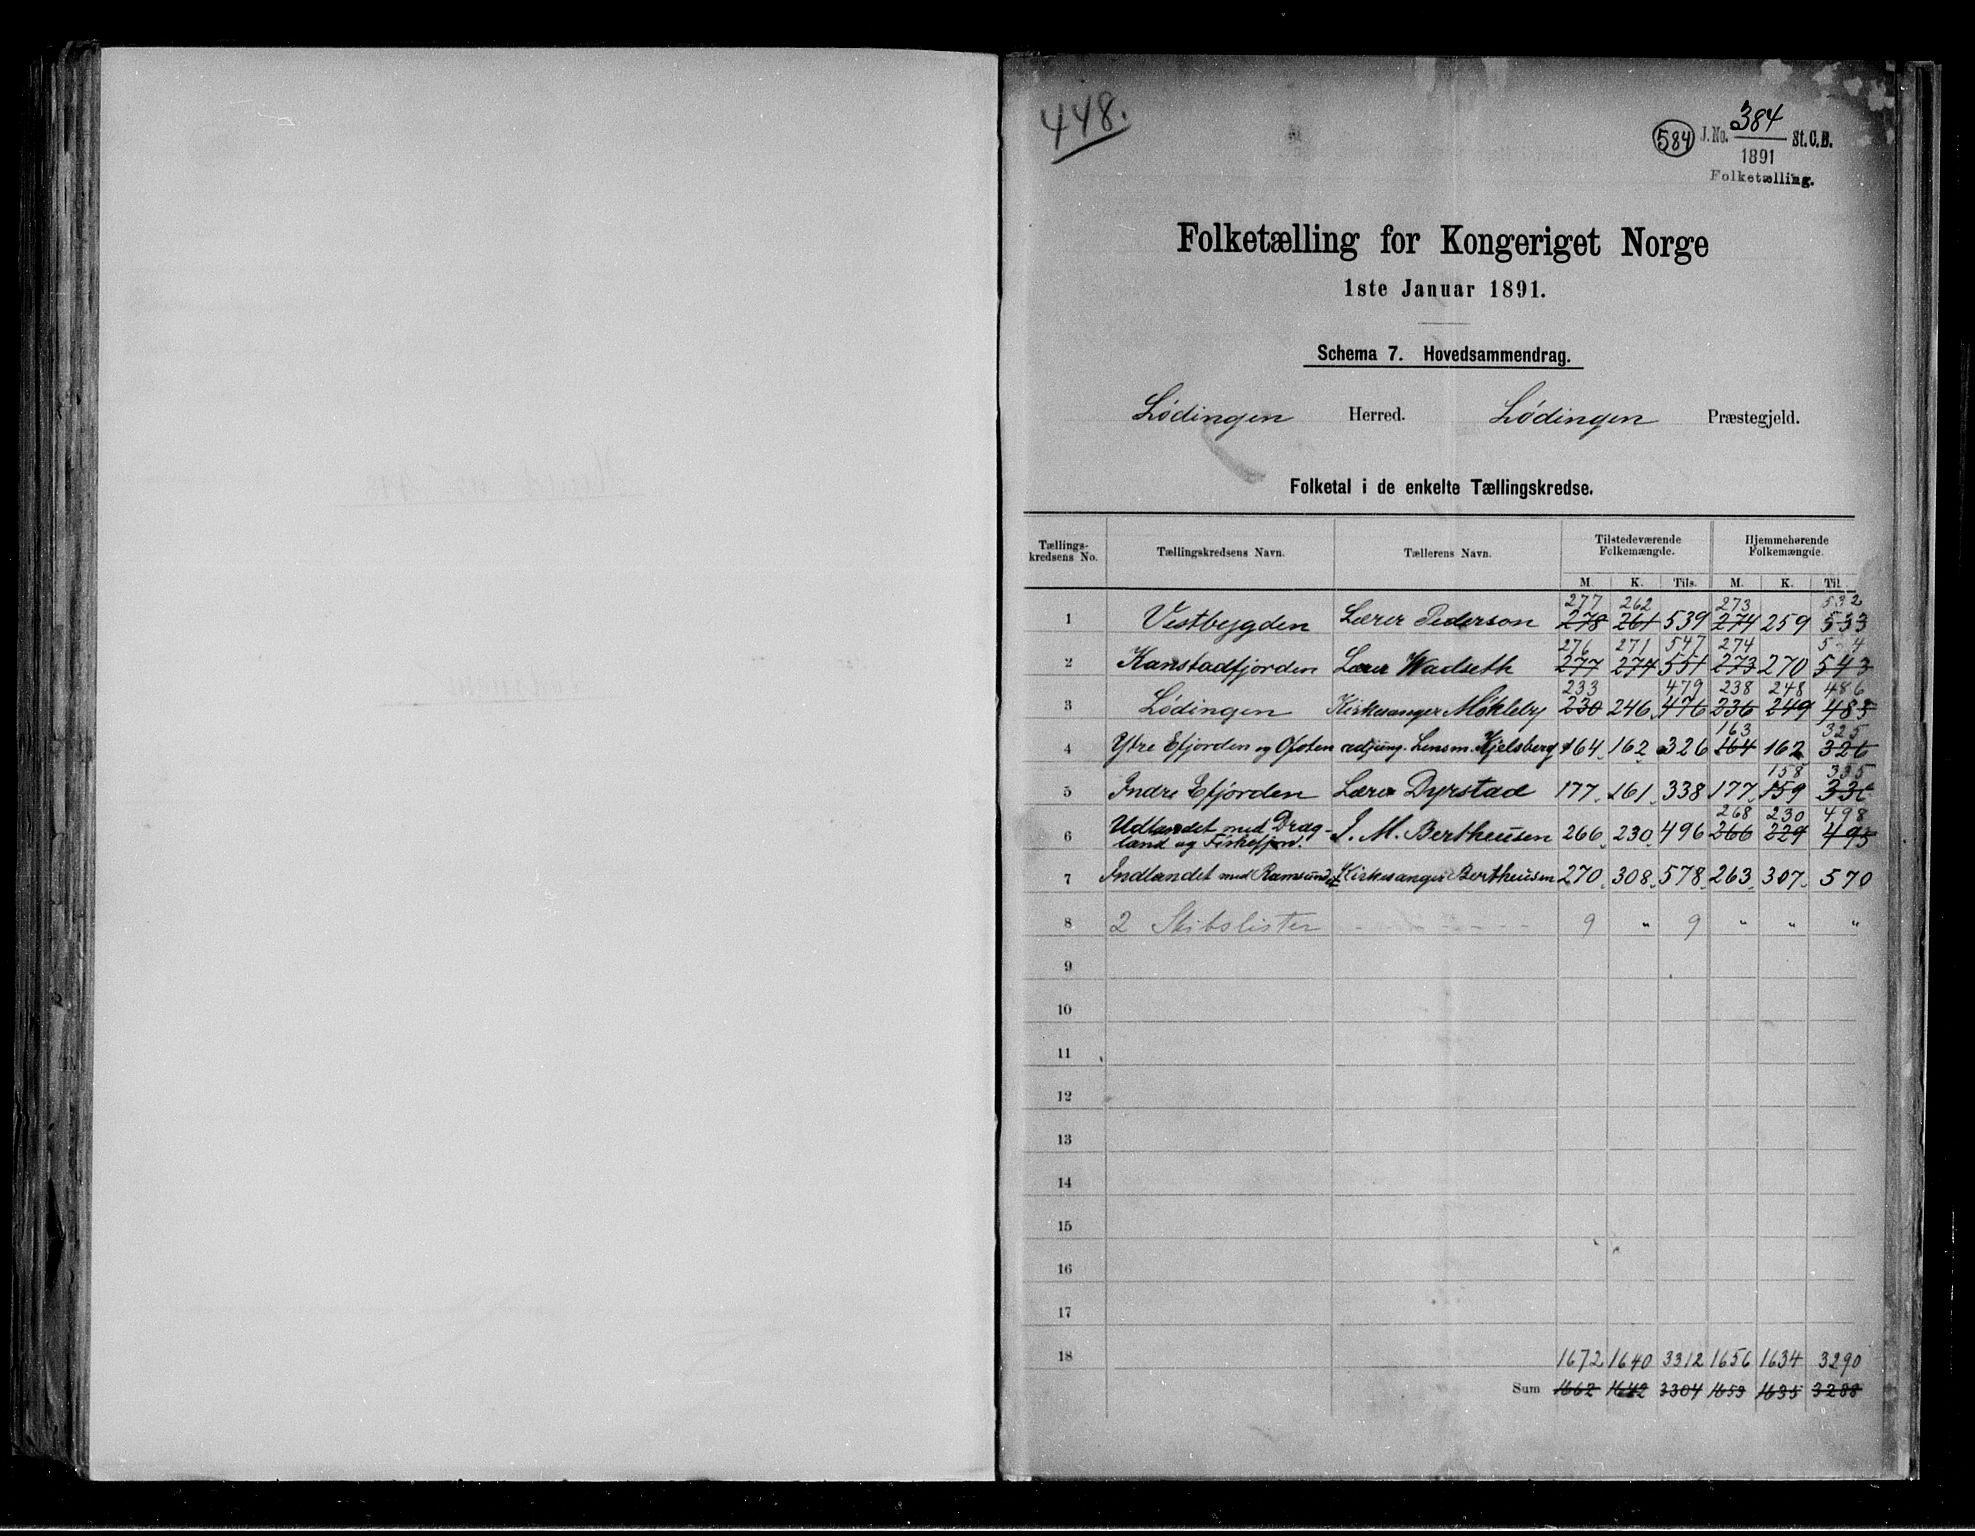 448.
584 J. No. 384 St. C. B.
1891
Folketælling.
Folketælling for Kongeriget Norge
1ste Januar 1891.
Schema 7. Hovedsammendrag.
Lødingen Herred. Lødingen Præstegjeld.
Folketal i de enkelte Tællingskredse.
Tællings-kredsens No. Tællingskredsens Navn. Tællerens Navn. Tilstedeværende Folkemængde. Hjemmehørende Folkemængde.
M. K. Tils. M. K. Til
277 262 273 532
1 Vestbygden Lærer Pederson 278 261 539 274 259 533
276 271 547 274
2 Kanstadfjorden Lærer Wadseth 277 274 551 273 270 543
233 479 238 248 486
3 Lødingen Kirkesanger Møkleby 230 246 476 236 249 485
163 325
4 Ytre Efjorden og Ofoten Lensm. Kjelsberg 164 162 326 164 162 326
158 335
5 Indre Efjorden Lærer Dyrstad 177 161 338 177 159
268 230 498
6 Udlandet med Drag-
land og Fiskefjord. J. M. Bertheusen 266 230 496 266 229 495
7 Indlandet med Ramsundet Kirkesanger Bertheusen 270 308 578 263 307 570
8 2 Skibslister 9 " 9 " " "
9
10
11
12
13
14
15
16
17
18 1672 1640 3312 1656 1634 3290
Sum 1662 1642 3304 1653 1635 3288